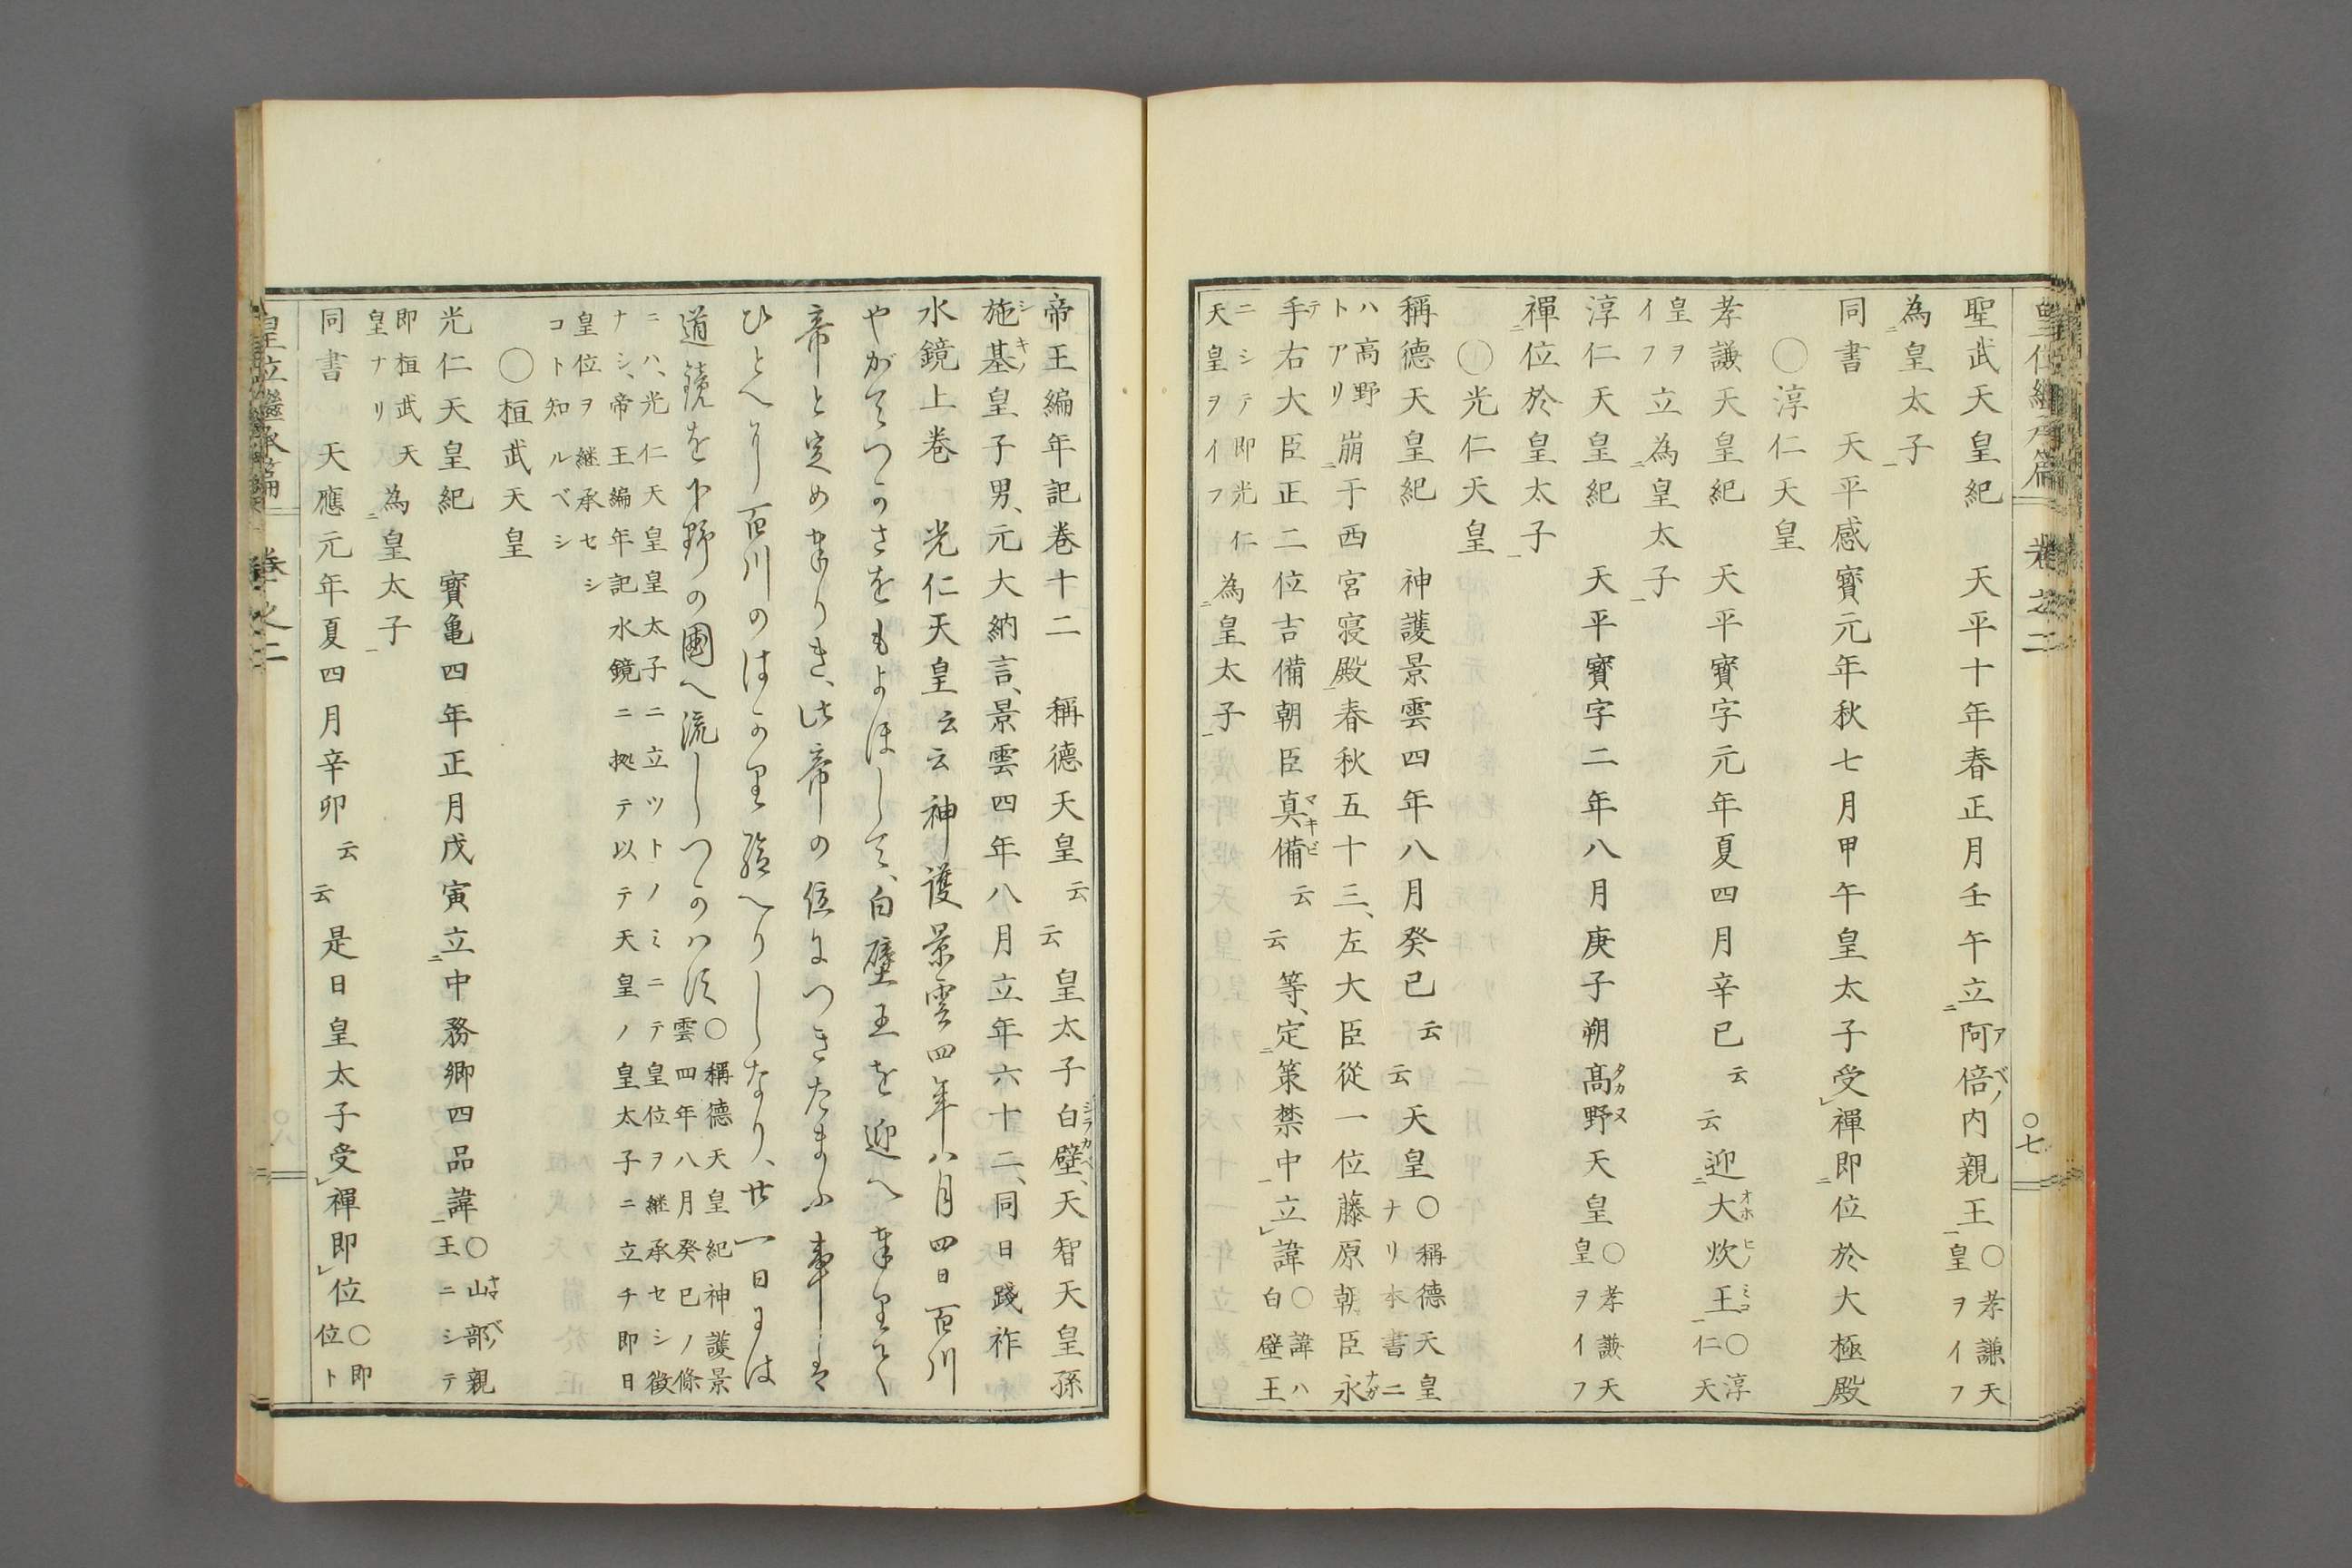 皇位繼承篇 卷之二 〇七
聖武天皇紀 天平十年春正月壬午立二阿倍アベノ内親王一〇孝謙天皇ヲイフ
為二皇太子一
同書 天平感寶元年秋七月甲午皇太子受レ禪即二位於大極殿一
〇淳仁天皇
孝謙天皇紀 天平寶字元年夏四月辛巳云云迎二大炊王オホヒノミコ一〇淳仁天
皇ヲイフ立為二皇太子一
淳仁天皇紀 天平寶字二年八月庚子朔高野タカヌ天皇〇孝謙天皇ヲイフ
禪二位於皇太子一
〇光仁天皇
稱德天皇紀 神護景雲四年八月癸巳云云天皇〇稱德天皇ナリ本書ニ
ハ高野トアリ崩二于西宮寝殿一春秋五十三、左大臣從一位藤原朝臣永ナガ
手テ右大臣正二位吉備朝臣真備マキビ云云等、定二策禁中一立レ諱〇諱ハ白壁王
ニシテ即光仁天皇ヲイフ為二皇太子一
帝王編年記卷十二 稱德天皇云云皇太子白壁シラカベ、天智天皇孫
施基シキノ皇子男、元大納言、景雲四年八月立年六十二、同日踐祚
水鏡上卷 光仁天皇云云神護景雲四年八月四日百川
やがてつかさをもよほして、白壁王を迎へ奉りて
帝と定め奉りき、此帝の位につきたまふ事は
ひとへに百川のはかり給へりしなり、廿一日には
道鏡を下野の國へ流しつかはす〇稱德天皇紀神護景雲四年八月癸巳ノ條
ニハ、光仁天皇皇太子ニ立ツトノミニテ皇位ヲ継承セシ徴ナシ、帝王編年記水鏡ニ拠テ以テ天皇ノ皇太子ニ立チ即日
皇位ヲ継承セシコト知ルベシ
〇桓武天皇
光仁天皇紀 寳亀四年正月戊寅立二中務卿四品諱一〇山部ヤマベノ親王ニシテ
即桓武天皇ナリ為二皇太子一
同書 天應元年夏四月辛卯云云是日皇太子受レ禪即レ位〇即位ト
皇位繼承篇 卷之二